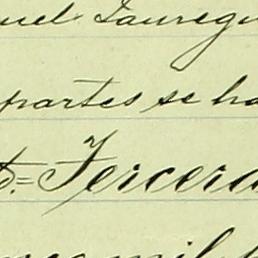 uel Jauregu
partes se ha
d.= Tercera
mil